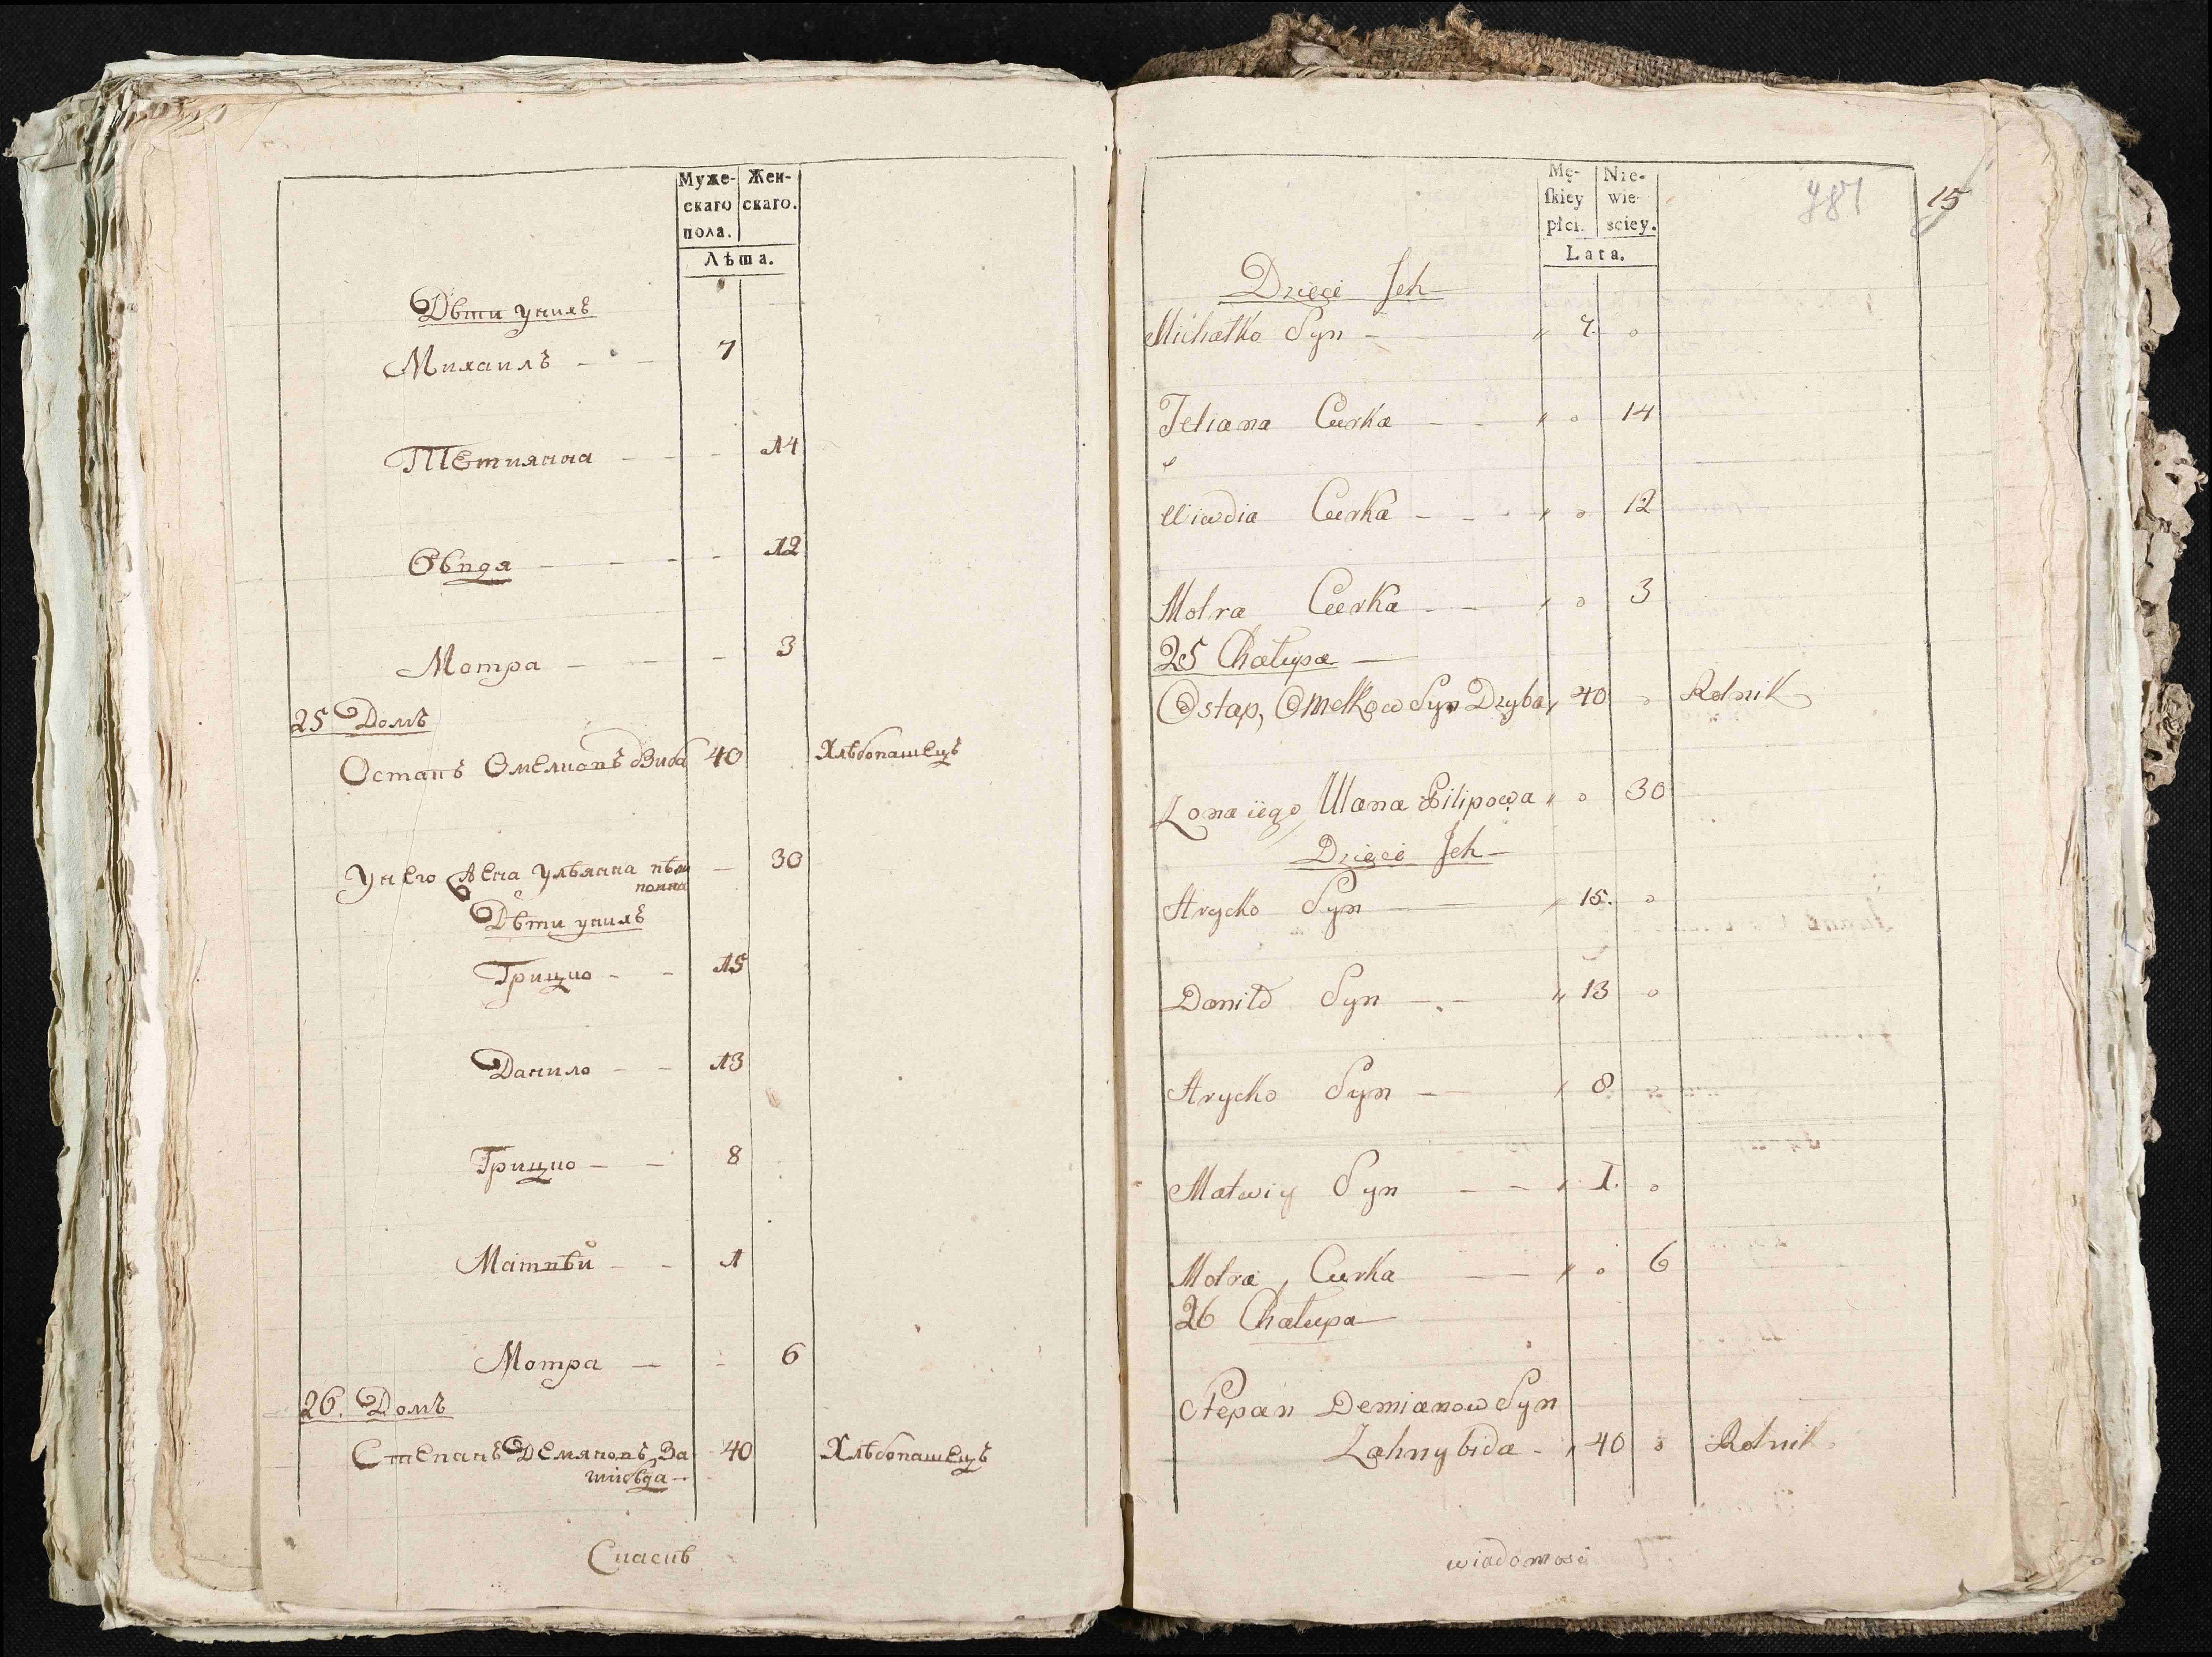 Муже- Жен-
скаго скаго.
пола.
Лѣта.
Дѣти унихъ
Михаилъ - - 7
Тетиянна - - - 14
Овидя - - - - 12
Мотра - - - 3
25 Домъ
Остапъ Омелионъ Дзиба 40 Хлѣбопашецъ
Унего Жена Улѣянна - 30
Дѣти унихъ
Грицио - - 15
Данило - - 13
Грицио - - 8
Матвѣй - - 1
Мотра - - 6
26. Домъ
Степанъ Демяновъ За- 40 Хлѣбопашецъ
гнибѣда -
Mę- Nie-
ſkiey wie-
płci. sciey.
Lata.
781 15
Dzieci Jch
Michałko Syn - 7. o
Tetiana Curka - - o 14
Wiwdia Curka - - o 12
Motra Curka - - o 3
25 Chałupa
Ostap, Omelkow Syn Dzyba 40 o Rolnik
Zona iego, Ulana Filipowa o 30
Dzieci Jch
Hrycko Syn 15. o
Daniło Syn - - 13 o
Hrycko Syn - 8 o
Matwiy Syn - - 1. o
Motra, Curka - o 6
26 Chałupa
Stepan Demianow Syn
Zahnybida - 40 o Rolnik
wiadomość